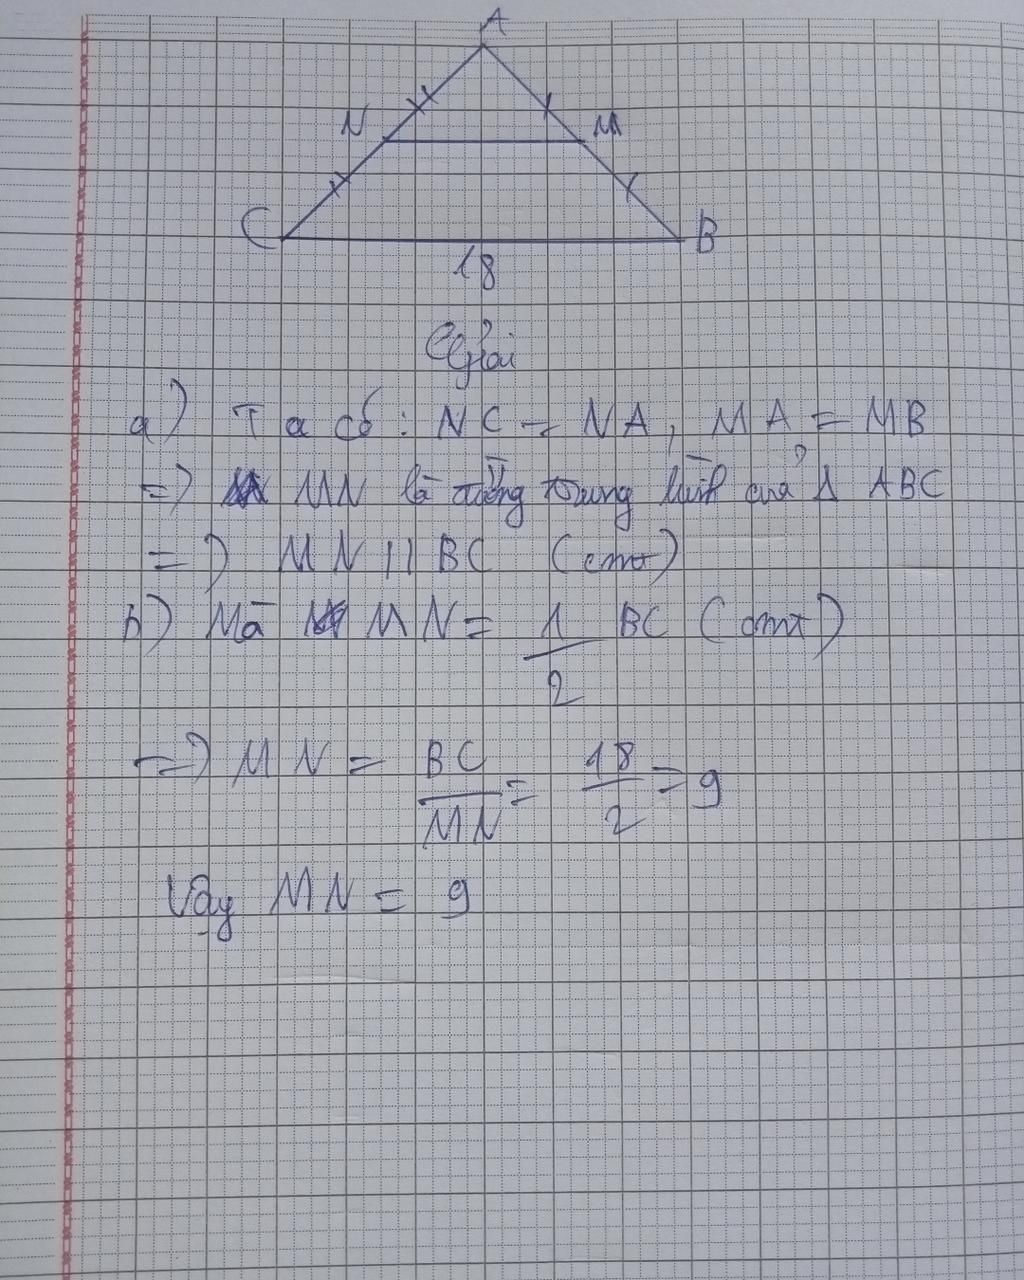 A
N M
C B
18
Giải
a) Ta có: NC = NA, MA = MB
=> MN là đường trung bình của Δ ABC
=> MN // BC (cmt)
b) Mà MN = 1/2 BC (cmt)
=> MN = BC/MN = 18/2 = 9
Vậy MN = 9